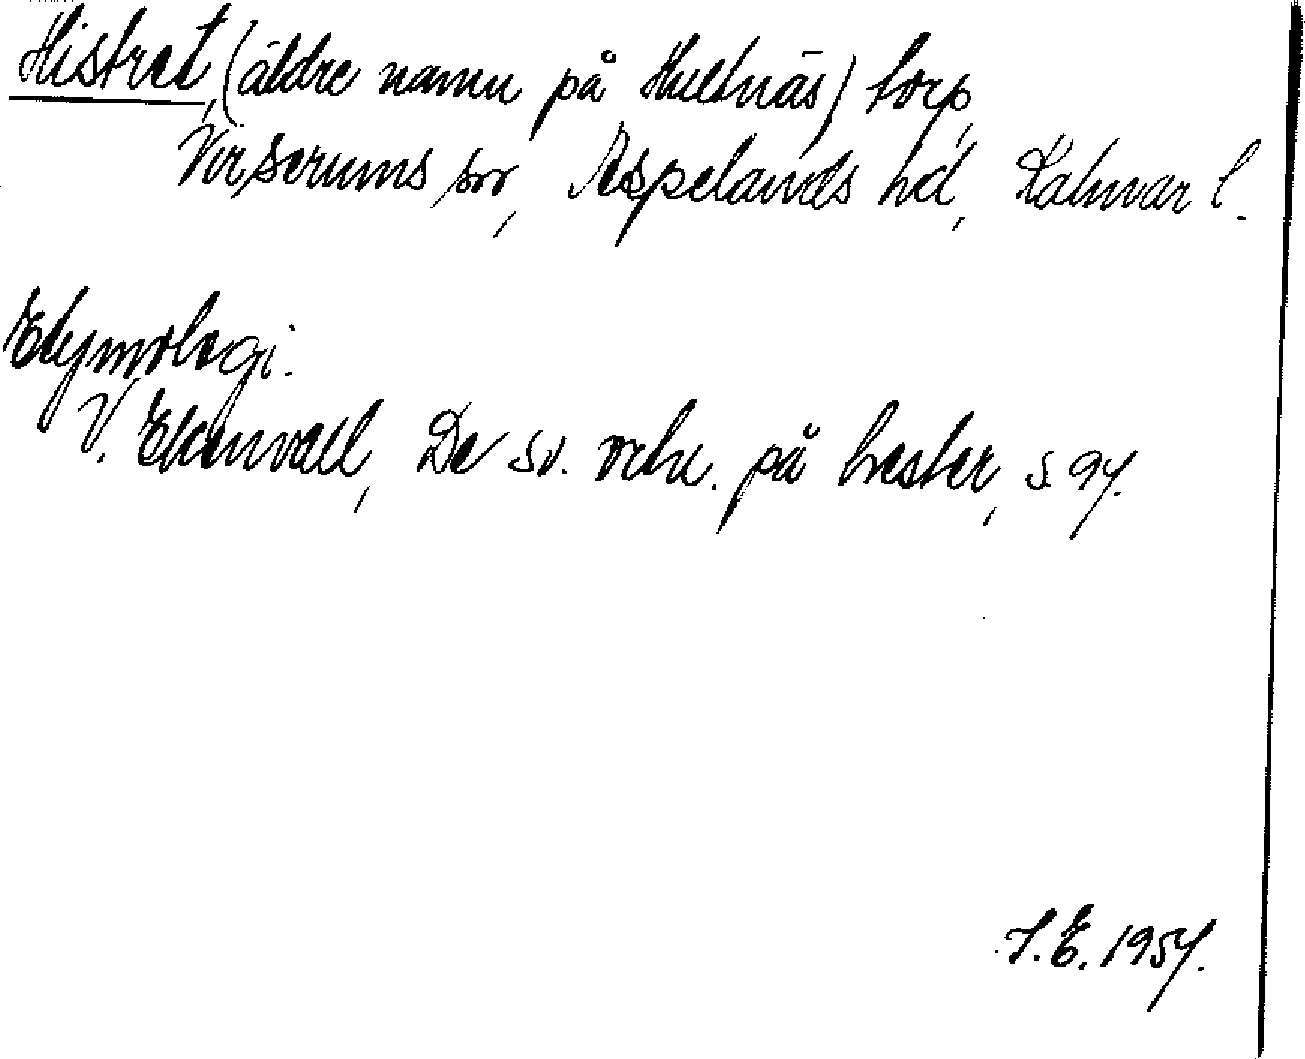 Histret, (äldre namn på Hultnäs) torp,
Virserums sn, Aspelands hd, Kalmar l.
Etymologi.
V. Ekenvall, De sv. ortn. på hester, s 94.
I. E. 1954.